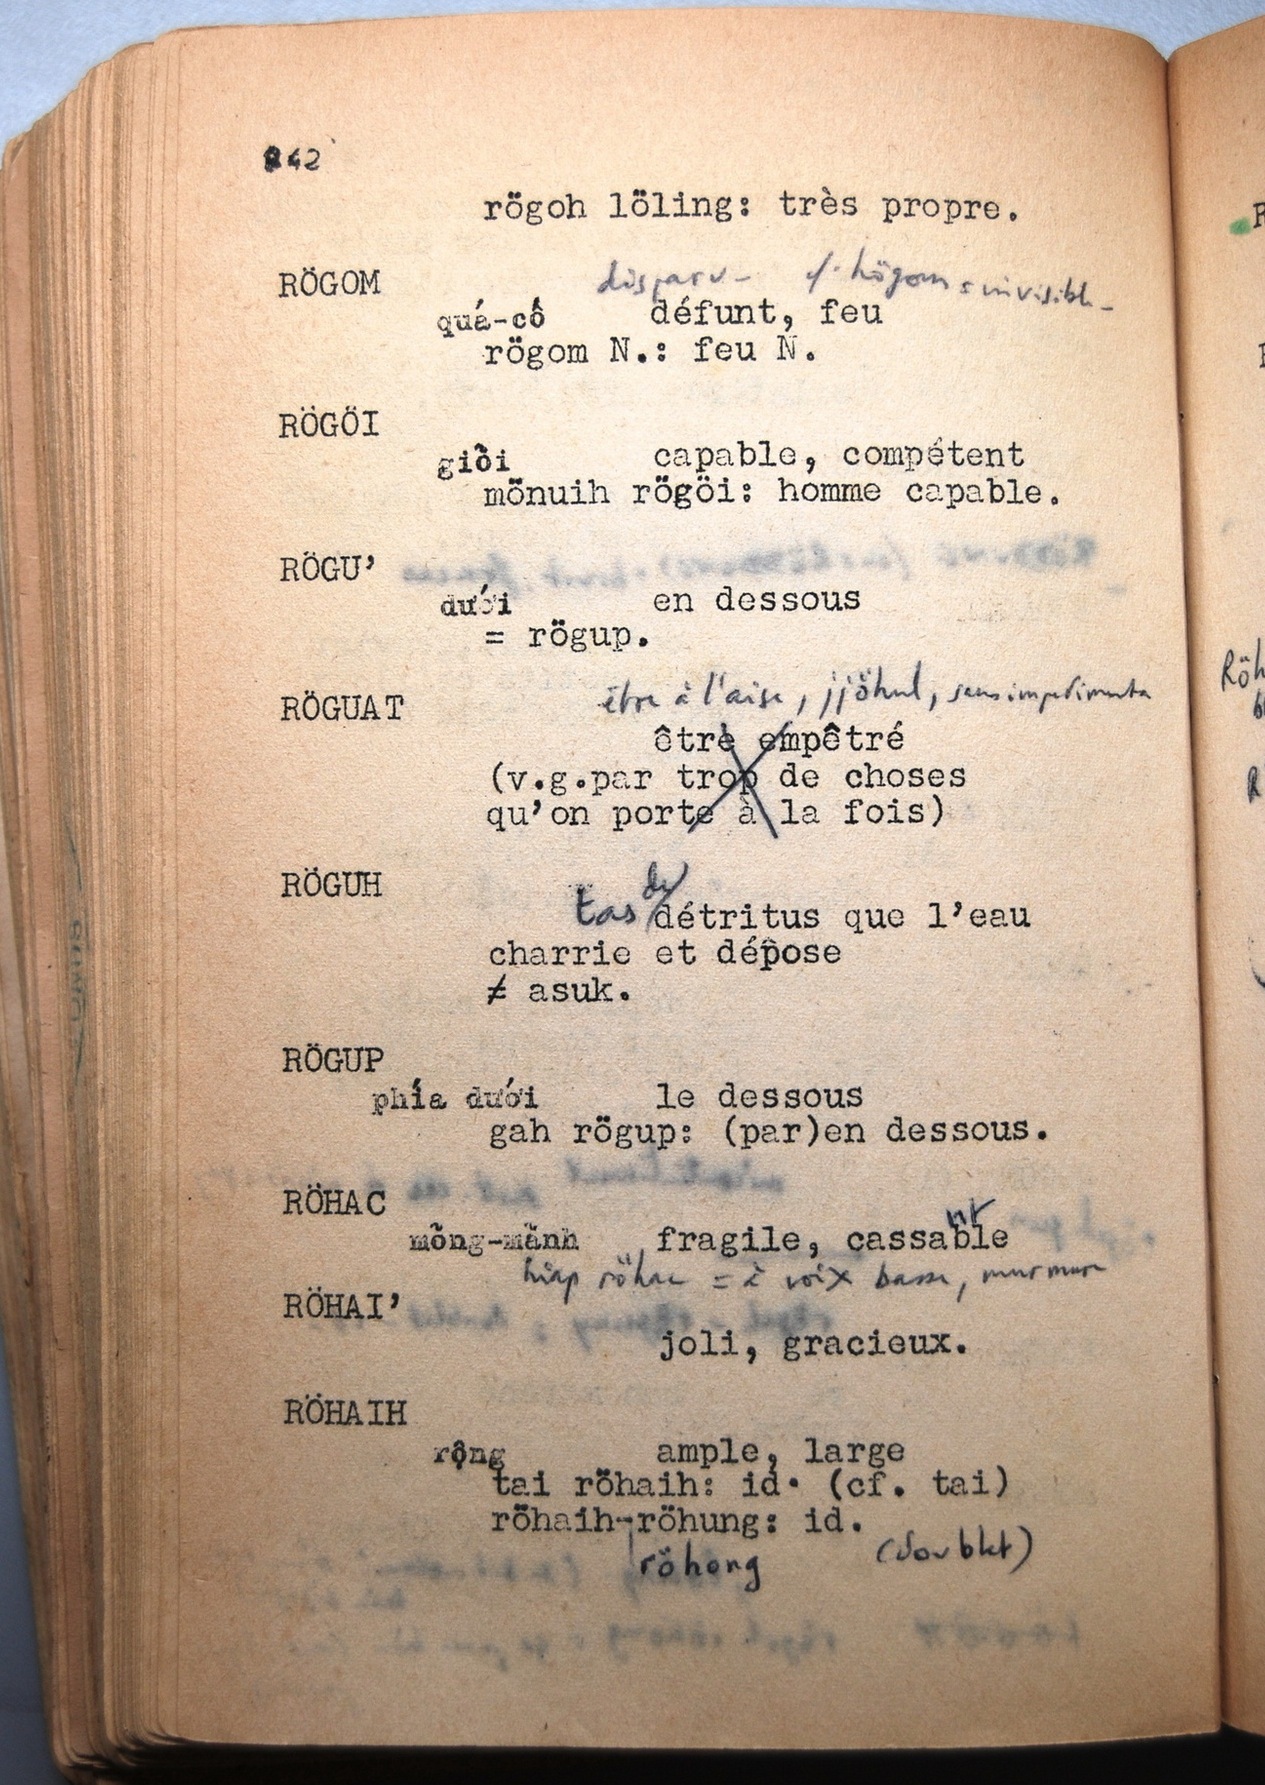 242
rögoh löling: très propre.
RÖGOM
disparu - cf. högom = invisible -
quá-cố défunt, feu
rögom N.: feu N.
RÖGÖI
giỏi capable, compétent
mönuih rögöi: homme capable.
RÖGU'
dưới en dessous
= rögup.
RÖGUAT
être à l'aise, jjöhul, sans impedimenta
être empêtré
(v.g.par trop de choses
qu'on porte à la fois)
RÖGUH
tas de détritus que l'eau
charrie et dépose
≠ asuk.
RÖGUP
phía dưới le dessous
gah rögup: (par)en dessous.
RÖHAC
nt
mõng-mãnh fragile, cassable
hiap röhac = à voix basse, murmure
RÖHAI'
joli, gracieux.
RÖHAIH
rộng ample, large
tai röhaih: id. (cf. tai)
röhaih-röhung: id.
röhong (doublet)
Röh
R